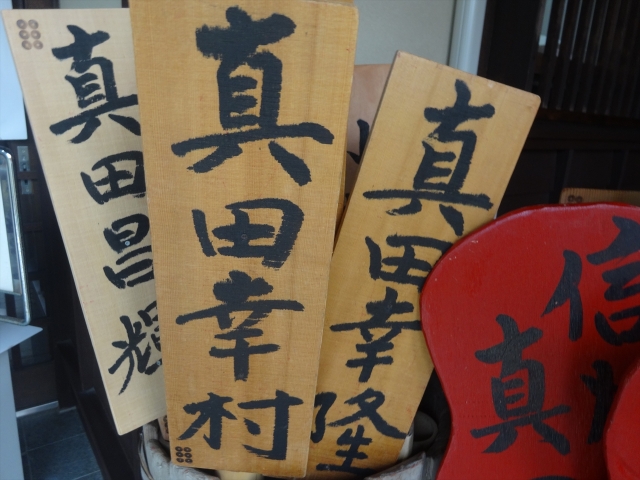 真田昌輝
真田幸村
真田幸隆
信
真